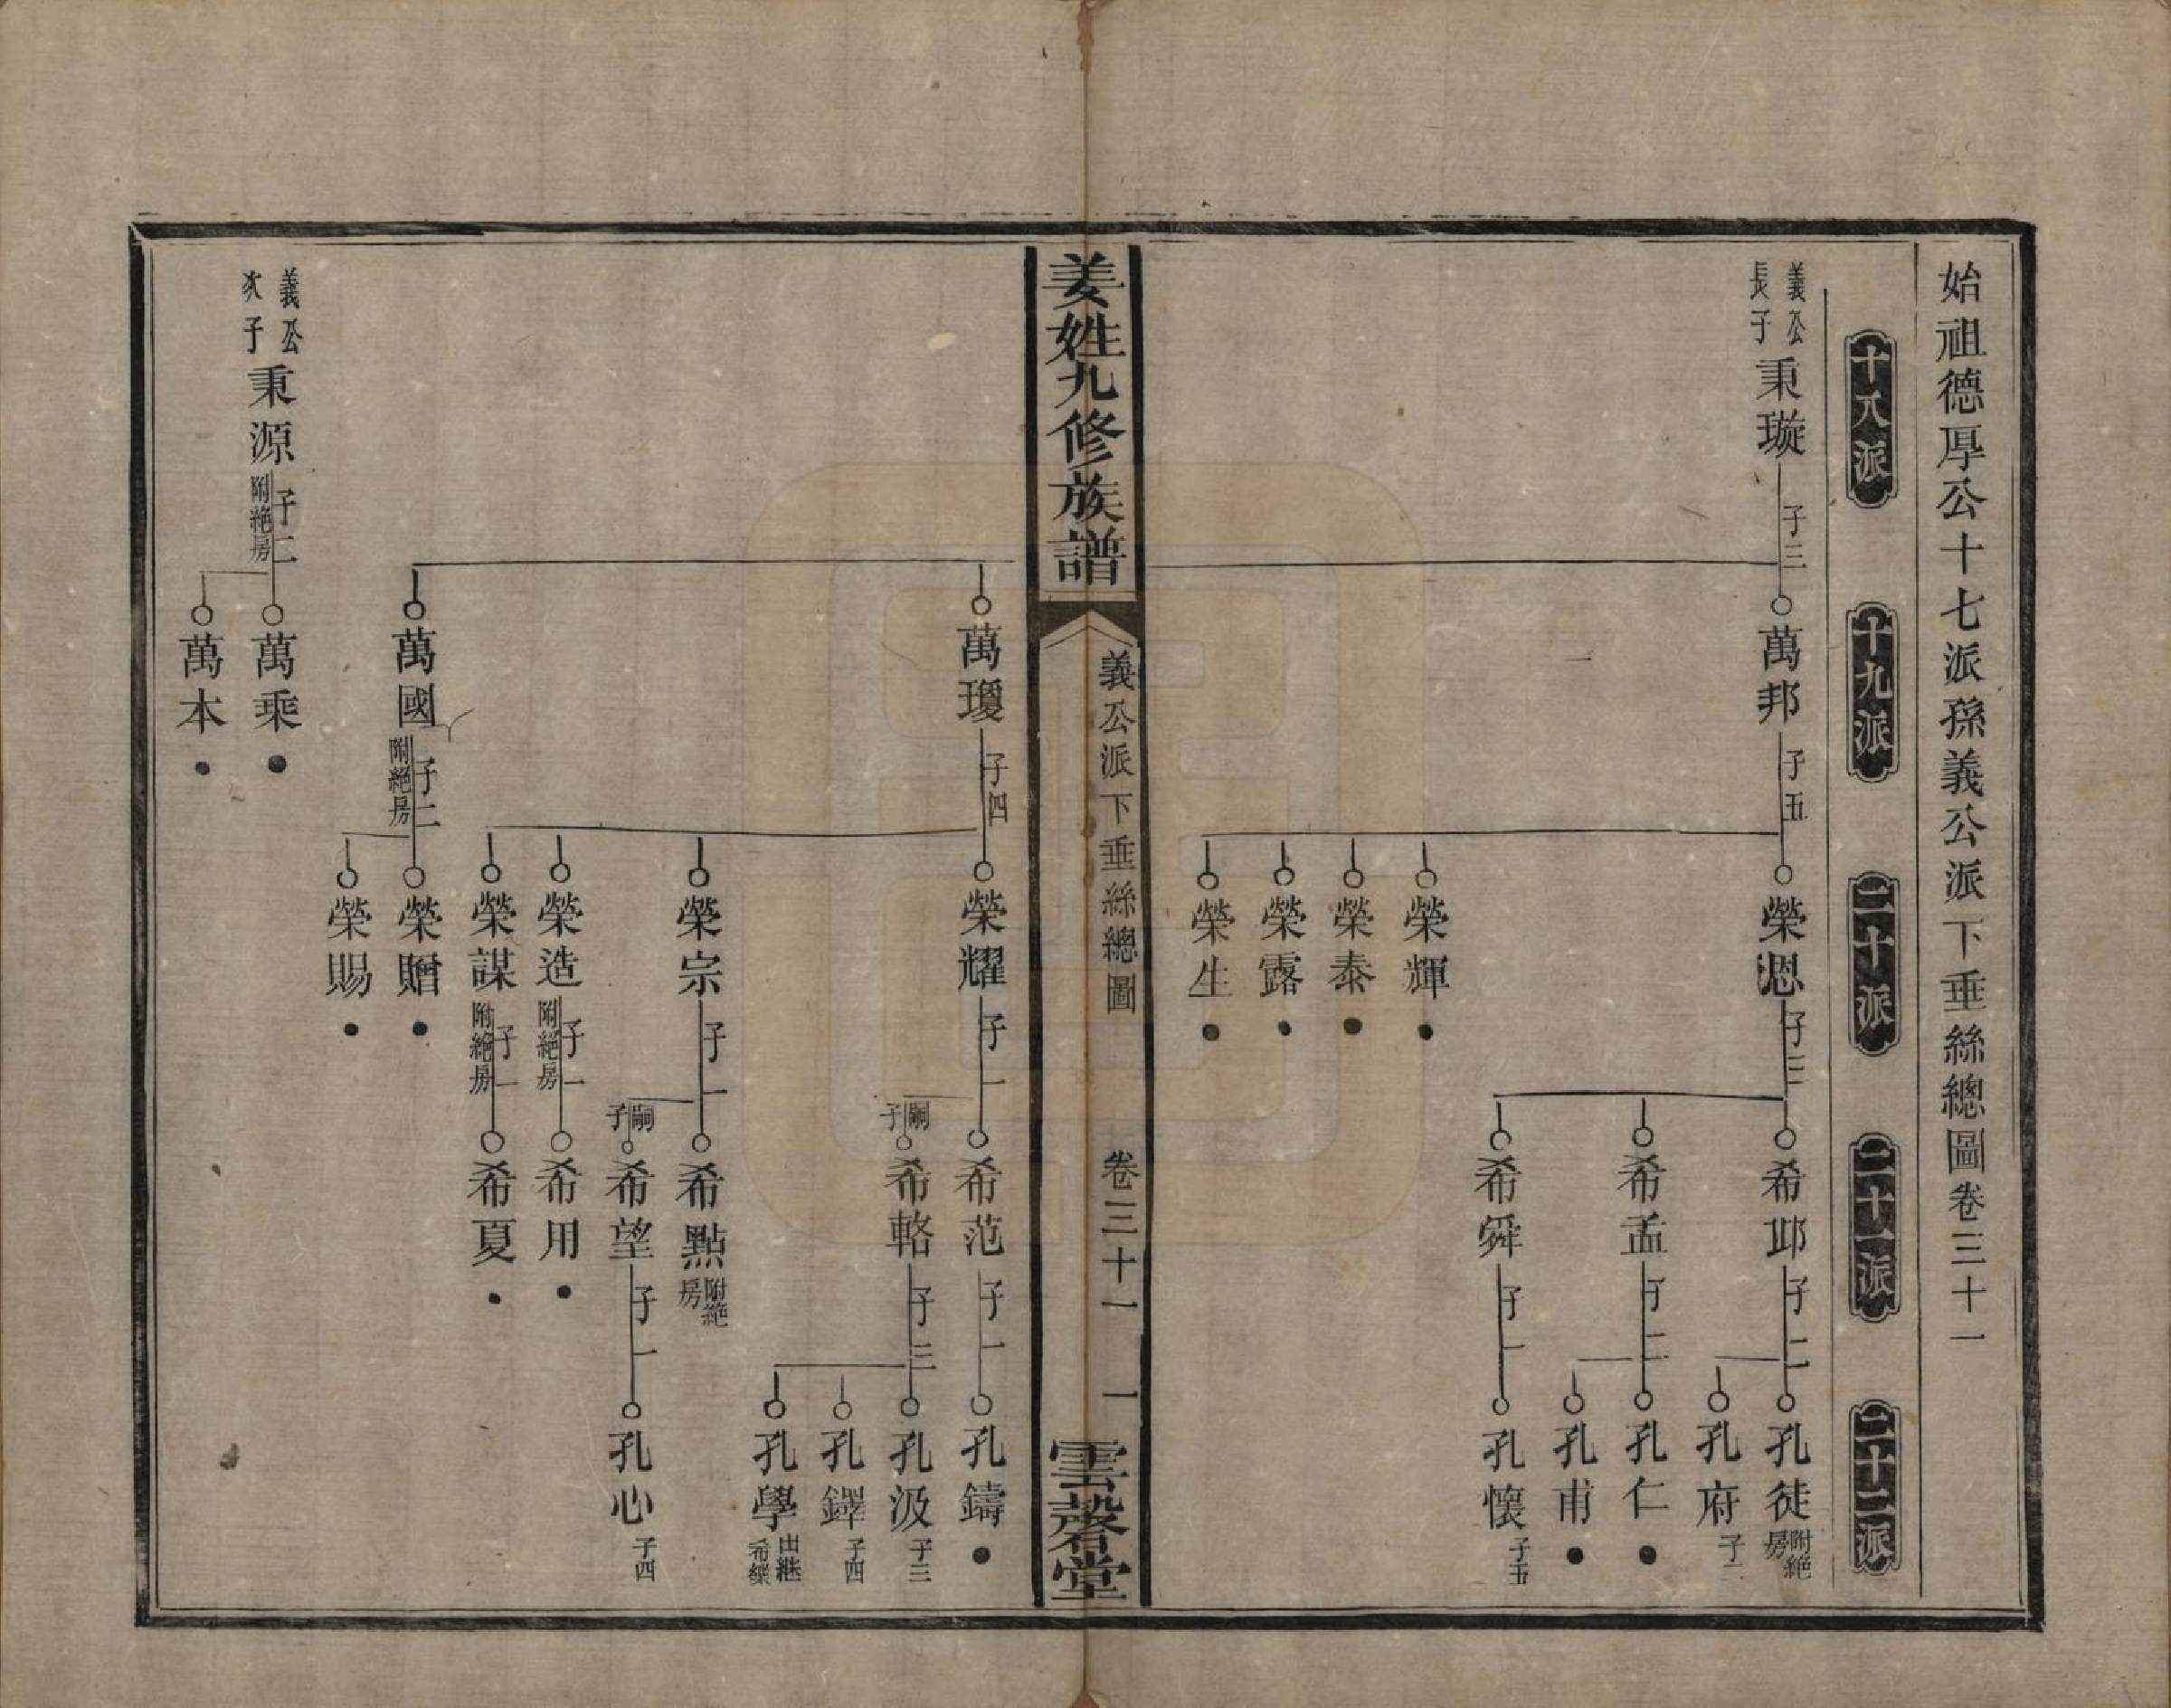 始祖德厚公十七派孫義公派下垂絲總圖卷三十一
十八派
十九派
二十派
二十一派
二十二派
義公
長子
秉璇
子三
萬邦
子五
榮恩
子三
希邛
子二
孔徒
附絕
房
孔府
子二
希孟
子二
孔仁
孔甫
希舜
子一
孔懷
子五
榮輝
榮泰
榮露
榮生
姜姓九修族譜
義公派下垂絲總圖
卷三十一
一
雲磬堂
萬瓊
子四
榮耀
子一
希范
子一
孔鑄
嗣
子
希輅
子三
孔汲
子三
孔鐸
子四
孔學
出継
榮宗
子一
希點
附絕
房
嗣
子
希望
子一
孔心
子四
榮造
子一
附絕房
希用
榮謀
子一
附絕房
希夏
萬國
子二
附絕房
榮贈
榮賜
義公
次子
秉源
子二
附絕房
萬乘
萬本